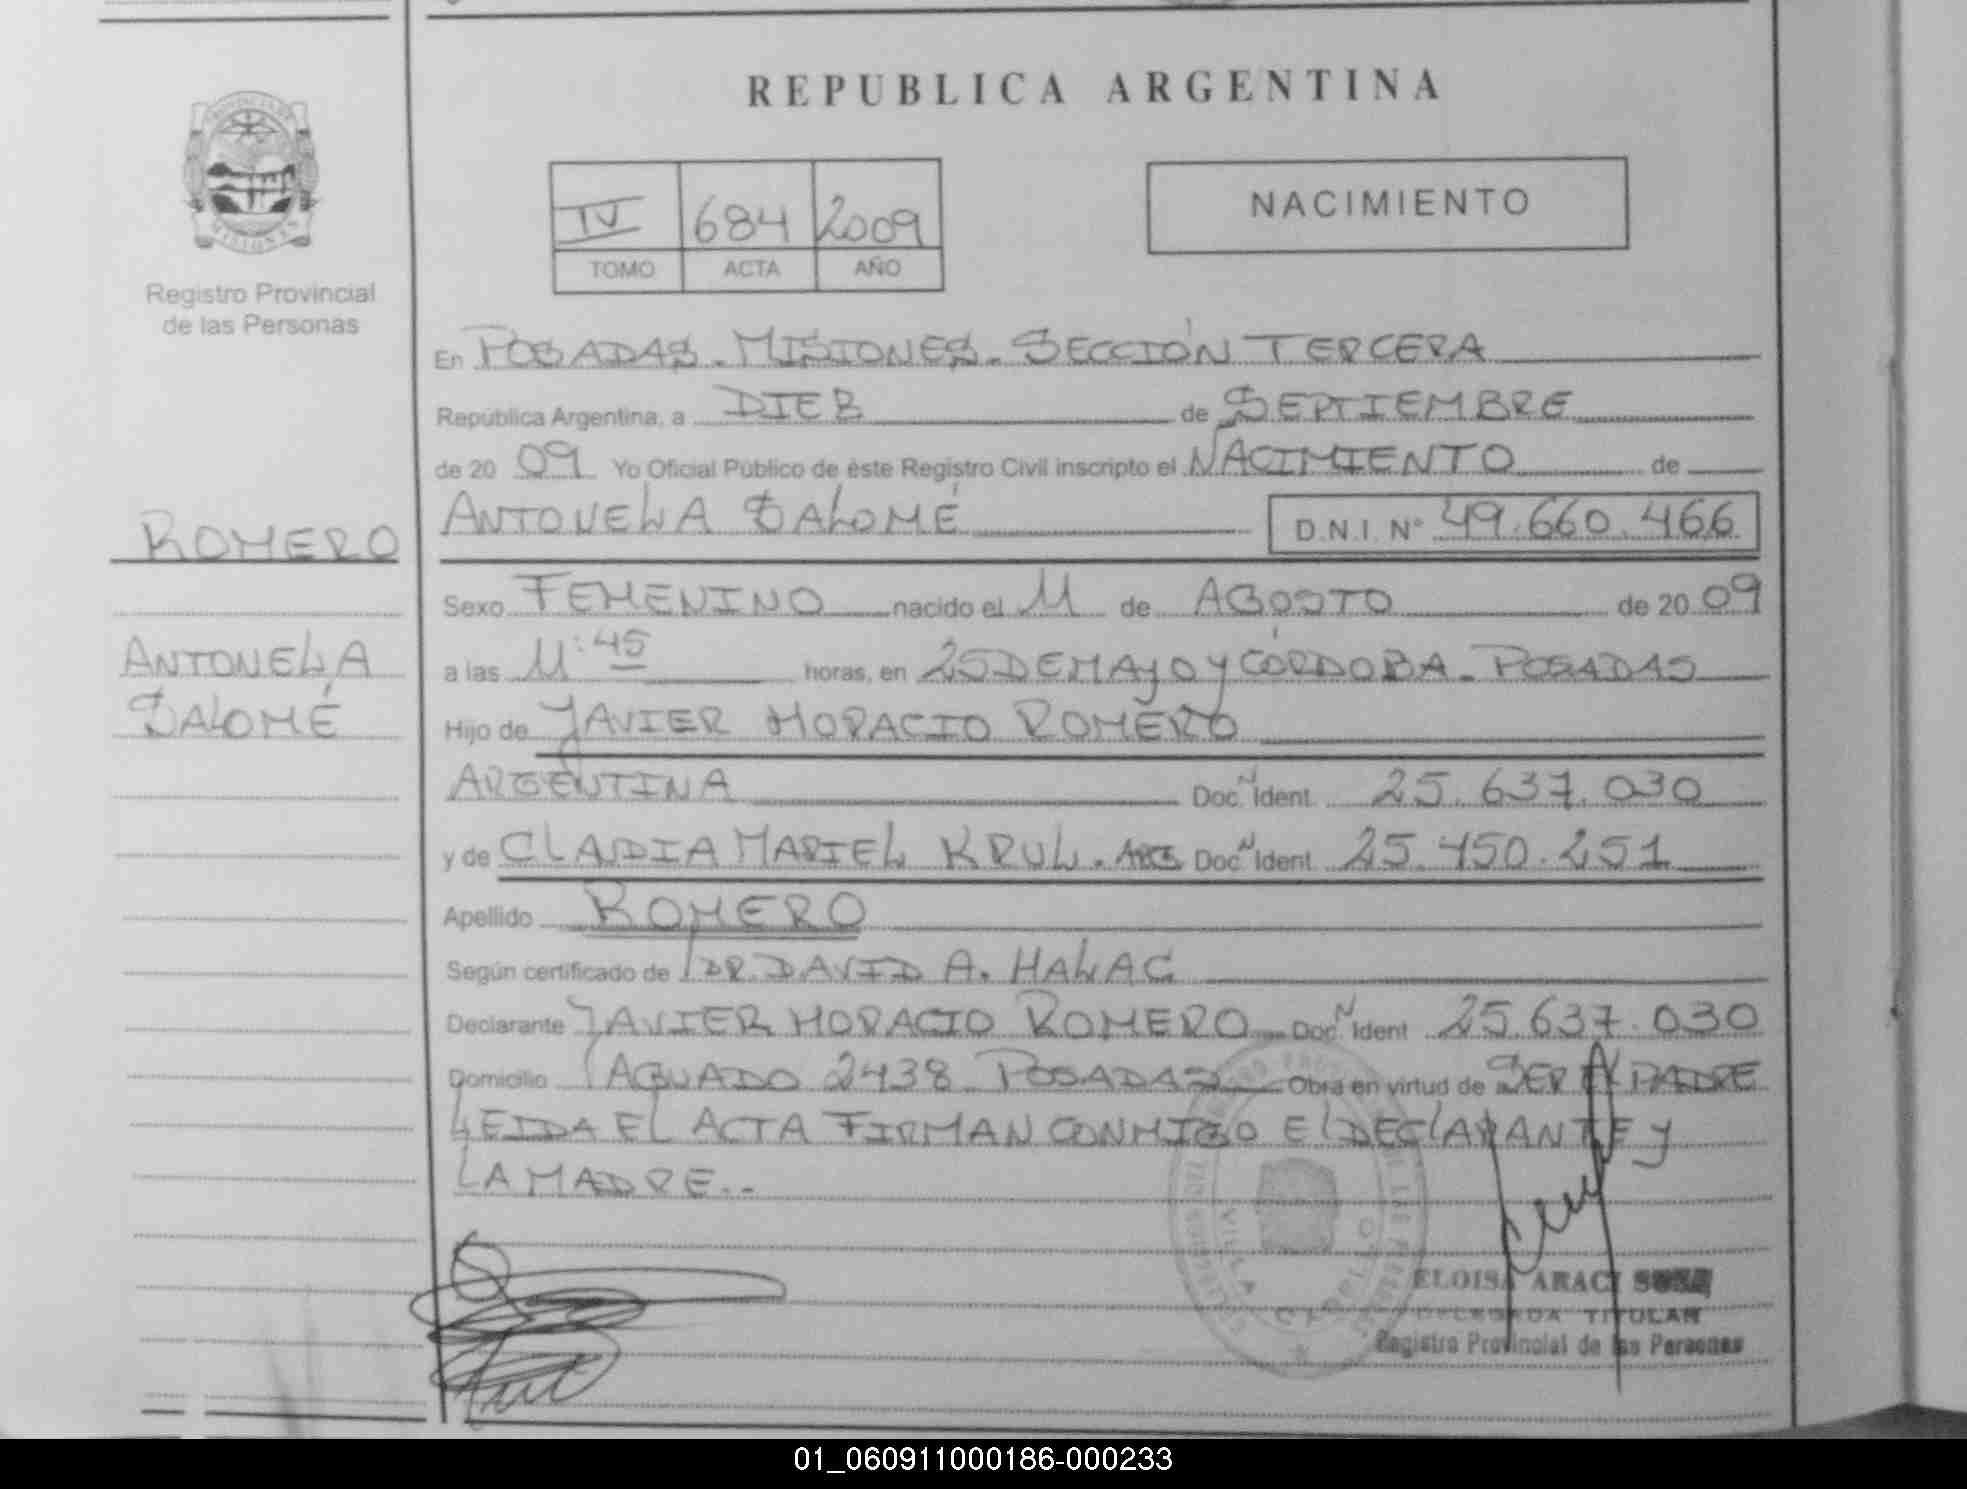 REPUBLICA ARGENTINA
IV 684 2009
TOMO ACTA AÑO
NACIMIENTO
Registro Provincial
de las Personas
En POSADAS - MISIONES - SECCIÓN TERCERA
República Argentina, a DIEZ de SEPTIEMBRE
de 20 09 Yo Oficial Público de éste Registro Civil inscripto el NACIMIENTO de
ROMERO
ANTONELLA SALOMÉ D.N.I. Nº 49.660.466
Sexo FEMENINO nacido el 11 de AGOSTO de 20 09
ANTONELLA
SALOMÉ
a las 11:45 horas, en 25 DE MAYO y CÓRDOBA - POSADAS
Hijo de JAVIER HORACIO ROMERO
ARGENTINA Doc. N Ident. 25.637.030
y de CLAUDIA MARIEL KRULL. ARG Doc. N Ident. 25.450.251
Apellido ROMERO
Según certificado de DR. DAVID A. HALAC
Declarante JAVIER HORACIO ROMERO Doc. N Ident. 25.637.030
Domicilio AGUADO 2438 POSADAS Obra en virtud de SER EL PADRE
LEIDA EL ACTA FIRMAN CONMIGO El DEClARANTE y
LA MADRE..
VILLA CABELLO
ELOISA ARACI
DELEGADA TITULAR
Registro Provincial de las Personas
01_060911000186-000233